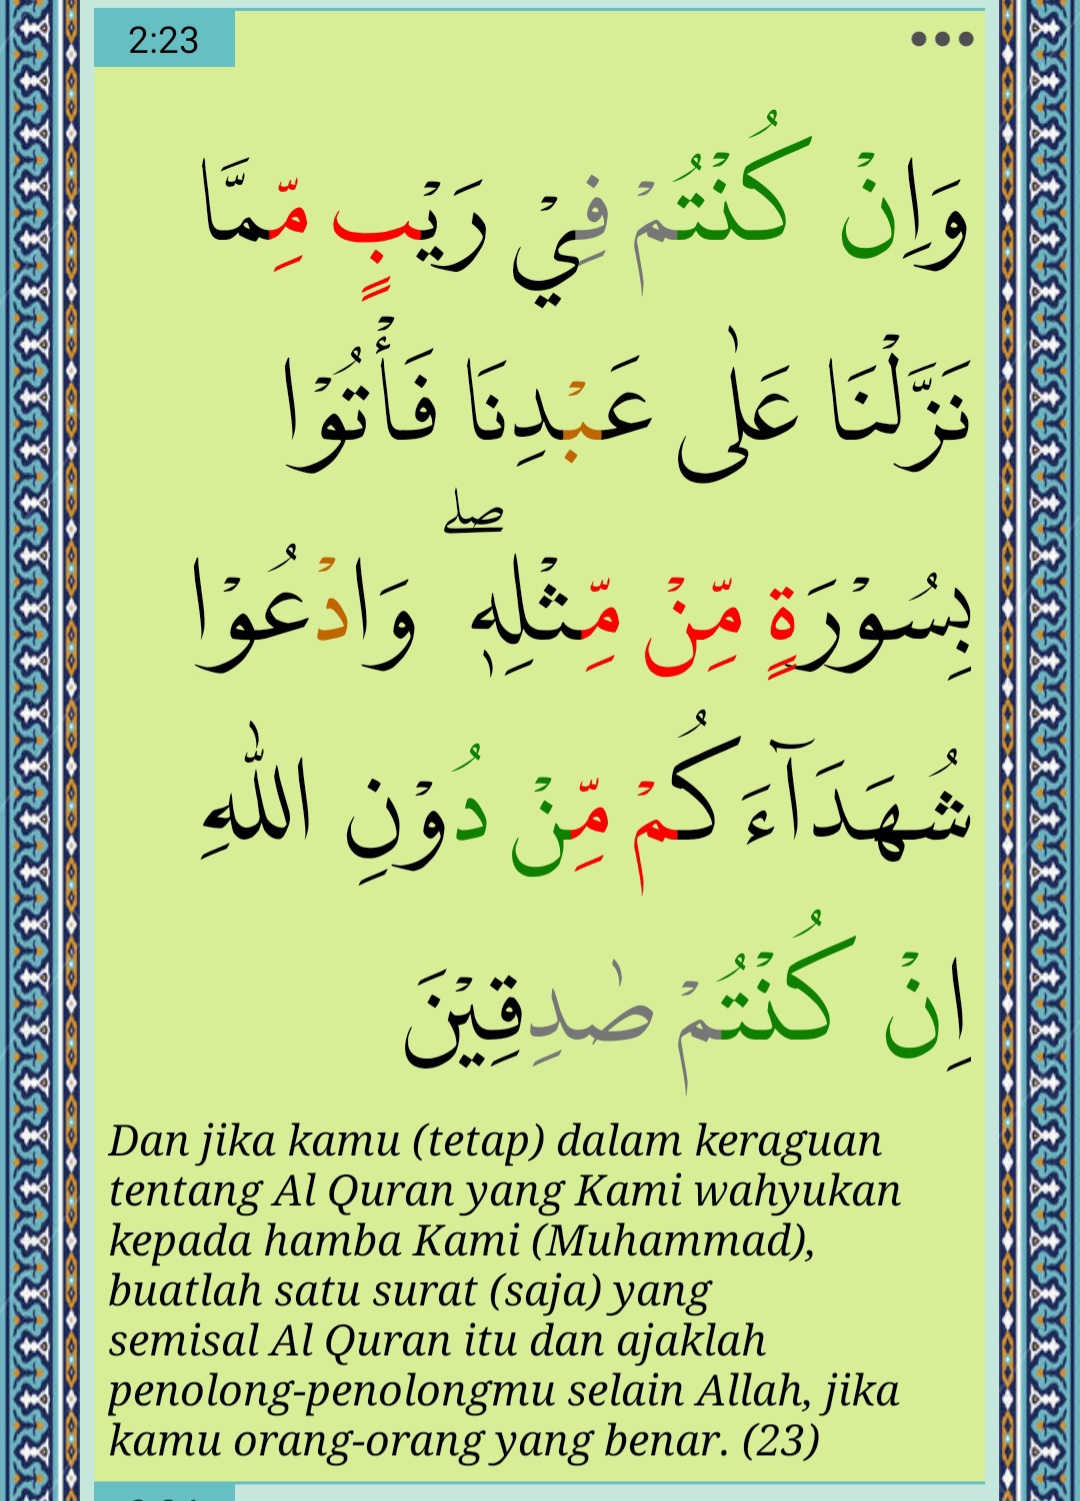 2:23
وَاِنْ كُنْتُمْ فِيْ رَيْبٍ مِّمَّا
نَزَّلْنَا عَلٰى عَبْدِنَا فَأْتُوْا
بِسُوْرَةٍ مِّنْ مِّثْلِهٖ ۖ وَادْعُوْا
شُهَدَآءَكُمْ مِّنْ دُوْنِ اللّٰهِ
اِنْ كُنْتُمْ صٰدِقِيْنَ
Dan jika kamu (tetap) dalam keraguan
tentang Al Quran yang Kami wahyukan
kepada hamba Kami (Muhammad),
buatlah satu surat (saja) yang
semisal Al Quran itu dan ajaklah
penolong-penolongmu selain Allah, jika
kamu orang-orang yang benar. (23)